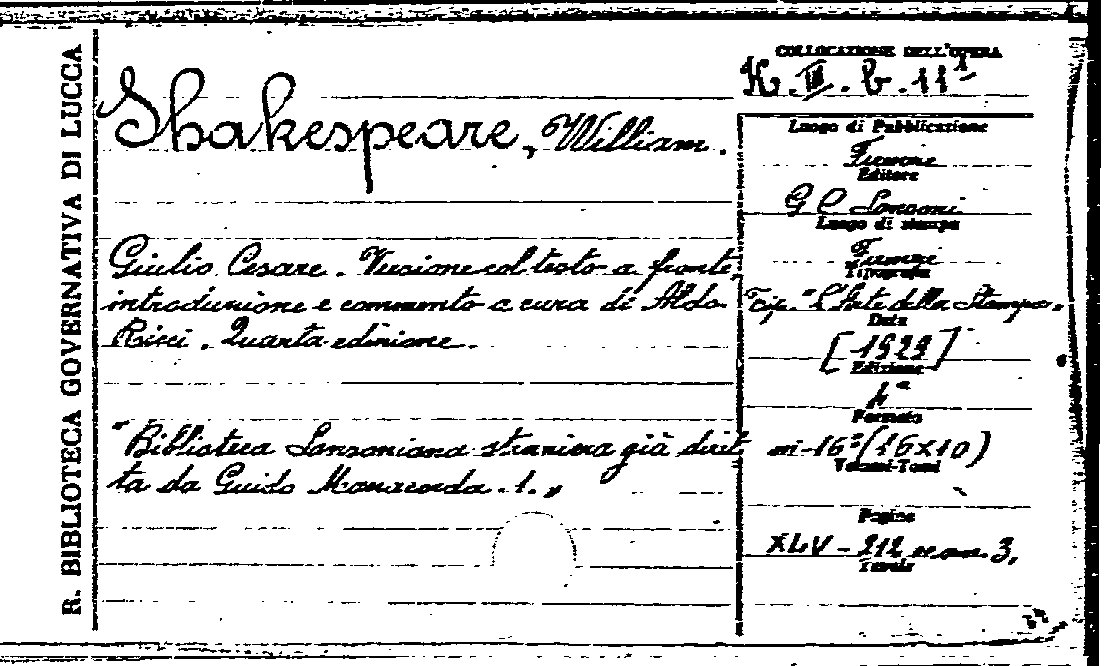 R. BIBLIOTECA GOVERNATIVA DI LUCCA
Shakespeare, William.
Giulio Cesare. Versione col testo a fronte,
introduzione e commento a cura di Aldo
Ricci. Quarta edizione.
"Biblioteca Sansoniana straniera già diret
ta da Guido Manacorda. 1.„
COLLOCAZIONE DELL'OPERA
K. III. b. 11¹
Luogo di Pubblicazione
Firenze
Editore
G C Sansoni
Luogo di stampa
Firenze
Tipografia
Tip. "L'Arte della Stampa„
Data
[1929]
Edizione
4ª
Formato
in-16º (16x10)
Volumi-Tomi
Pagine
XLV - 212 3,
Tavole